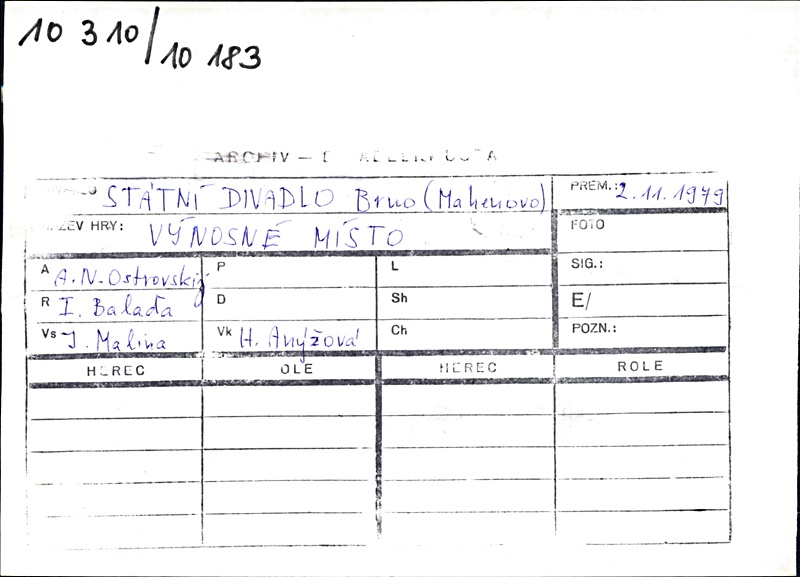 10 310/10 183
ARCHIV –
STÁTNÍ DIVADLO Brno (Mahenovo) PREM.: 2.11.1979
ZEV HRY: VÝNOSNÉ MÍSTO FOTO
A A.N. Ostrovskij P L SIG.:
R I. Balaďa D Sh E/
Vs J. Malina Vk H. Anýžová Ch POZN.:
HEREC OLE HEREC ROLE